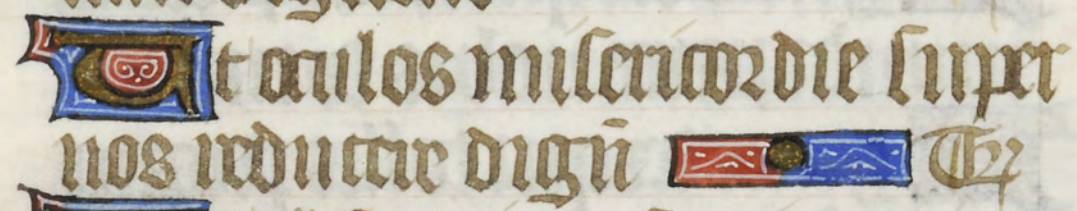 Ut oculos misericordie super
nos reducere dign̄ Te r